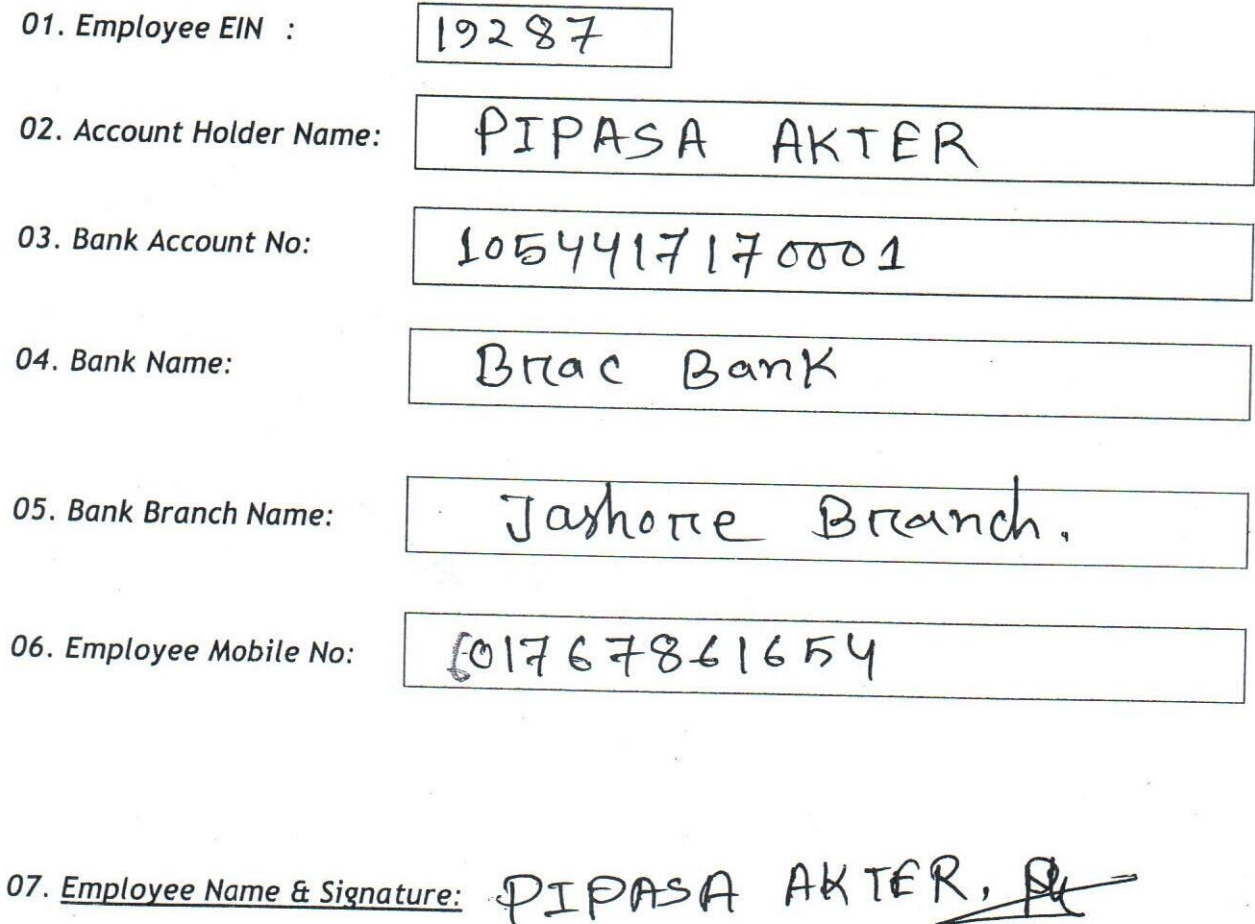 01. Employee EIN : 19287
02. Account Holder Name: PIPASA AKTER
03. Bank Account No: 1054417170001
04. Bank Name: Brac Bank
05. Bank Branch Name: Jashore Branch.
06. Employee Mobile No: 01767861654
07. Employee Name & Signature: PIPASA AKTER,